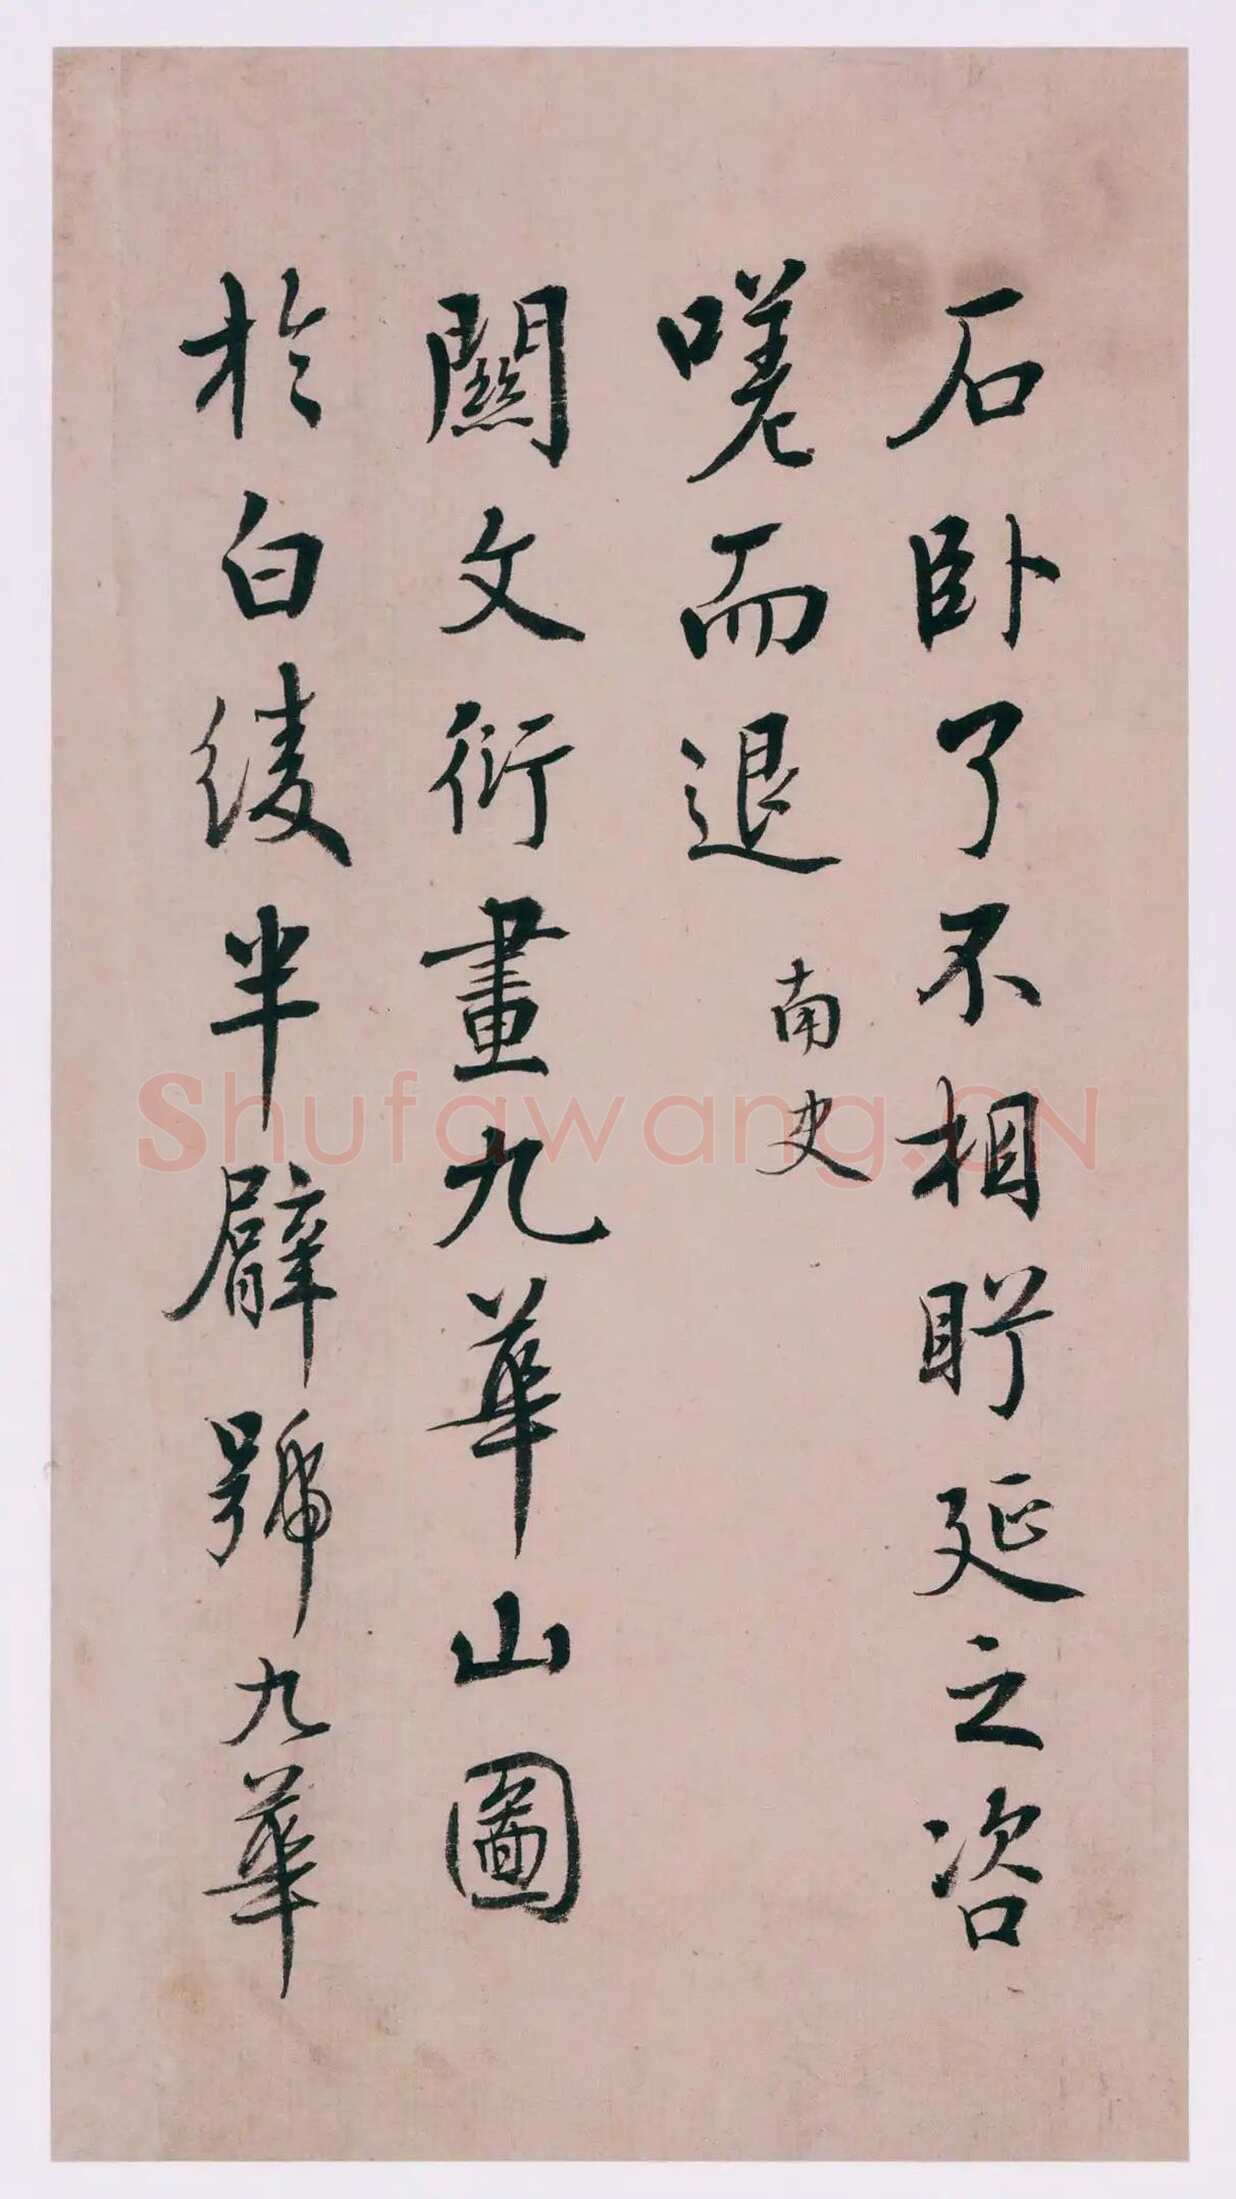 石卧了不相眄延之咨
嗟而退 南史
關文衍畫九華山圖
於白綾半臂號九華
Shufawang.CN